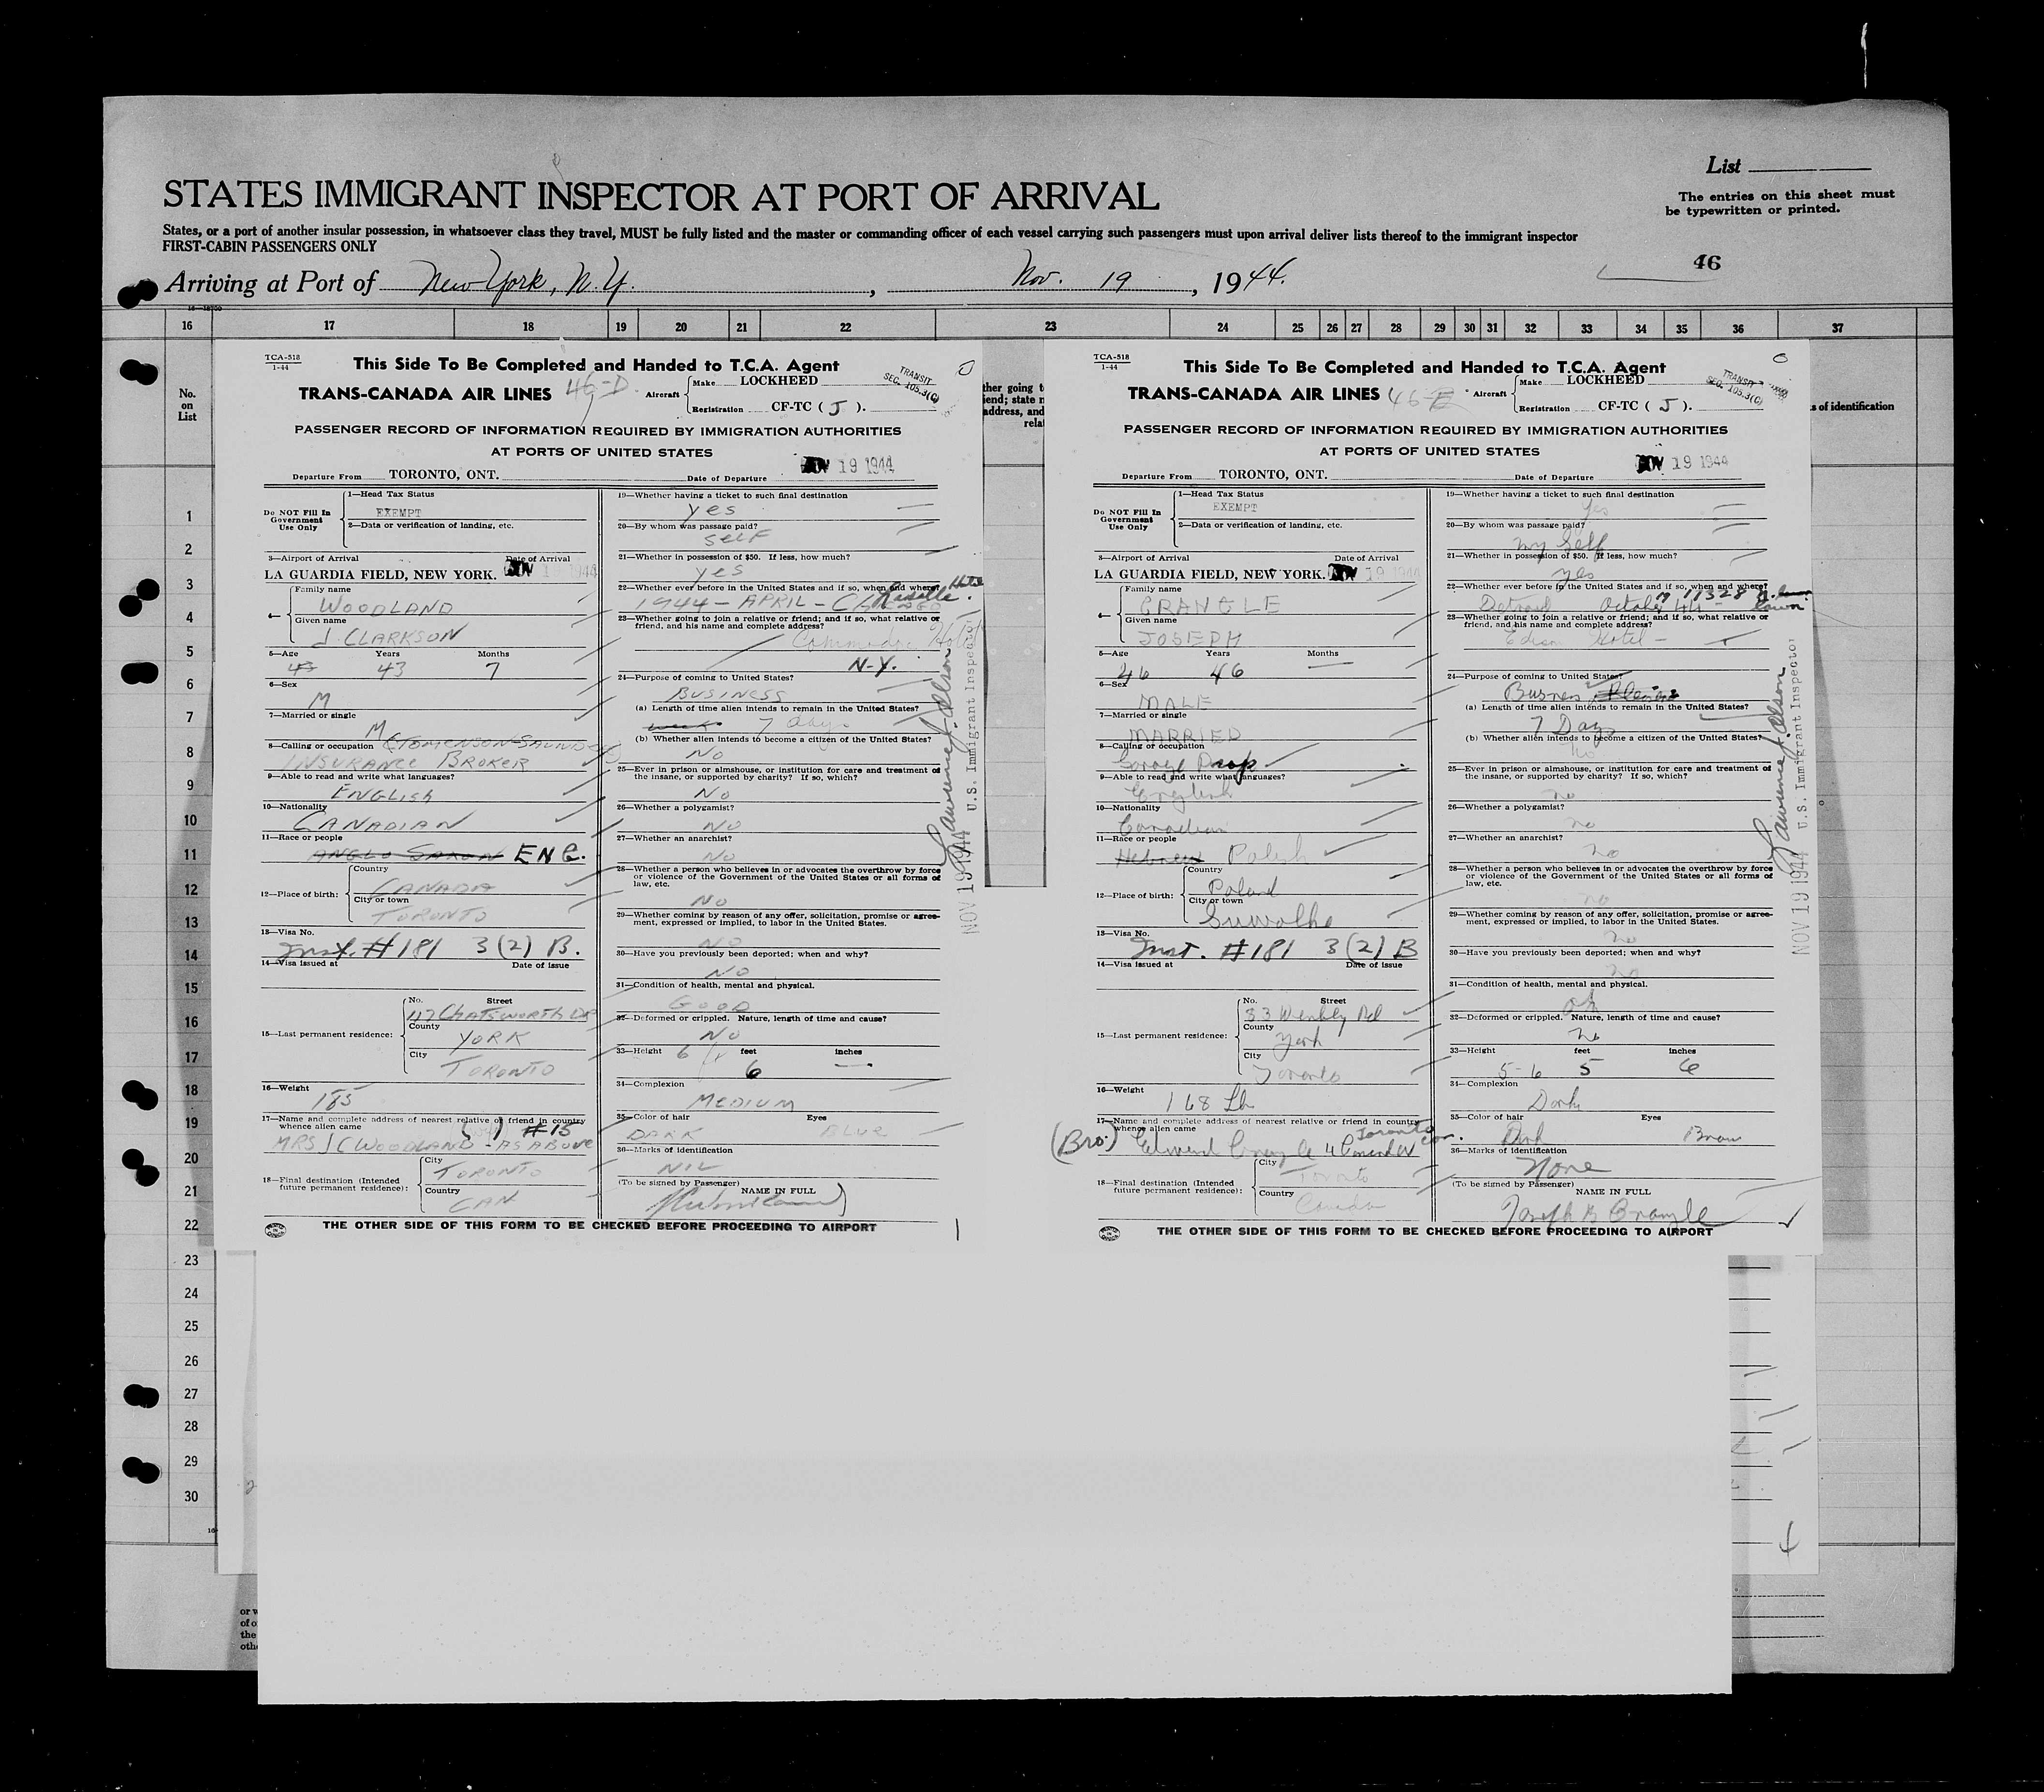 List
STATES IMMIGRANT INSPECTOR AT PORT OF ARRIVAL
The entries on this sheet must
be typewritten or printed.
States, or a port of another insular possession, in whatsoever class they travel, MUST be fully listed and the master or commanding officer of each vessel carrying such passengers must upon arrival deliver lists thereof to the immigrant inspector
FIRST-CABIN PASSENGERS ONLY
46
Arriving at Port of New York, N.Y. , Nov. 19 , 1944.
16 17 18 19 20 21 22 23 24 25 26 27 28 29 30 31 32 33 34 35 36 37
No.
on
List
1
2
3
4
5
6
7
8
9
10
11
12
13
14
15
16
17
18
19
20
21
22
23
24
25
26
27
28
29
30
TCA-518
1-44
This Side To Be Completed and Handed to T.C.A. Agent
TRANS-CANADA AIR LINES 46-D Aircraft Make LOCKHEED
Registration CF-TC ( J ).
TRANSIT
SEC. 105.3(C)
PASSENGER RECORD OF INFORMATION REQUIRED BY IMMIGRATION AUTHORITIES
AT PORTS OF UNITED STATES
Departure From TORONTO, ONT. Date of Departure NOV 19 1944
Do NOT Fill In
Government
Use Only
1—Head Tax Status
EXEMPT
2—Data or verification of landing, etc.
3—Airport of Arrival Date of Arrival
LA GUARDIA FIELD, NEW YORK. NOV 1 1944
4— Family name
WOODLAND
Given name
J. CLARKSON
5—Age Years Months
43 43 7
6—Sex
M
7—Married or single
M
8—Calling or occupation
INSURANCE BROKER
9—Able to read and write what languages?
ENGLISH
10—Nationality
CANADIAN
11—Race or people
ANGLO SAXON ENG.
12—Place of birth: Country
CANADA
City or town
TORONTO
13—Visa No.
Inst. #181 3(2) B.
14—Visa issued at Date of issue
15—Last permanent residence: No. Street
117 CHATSWORTH DR
County
YORK
City
TORONTO
16—Weight
185
17—Name and complete address of nearest relative or friend in country
whence alien came #15
MRS J C WOODLAND - AS ABOVE
18—Final destination (Intended
future permanent residence):
City
TORONTO
Country
CAN
19—Whether having a ticket to such final destination
yes
20—By whom was passage paid?
SELF
21—Whether in possession of $50. If less, how much?
yes
22—Whether ever before in the United States and if so, when and where?
1944 - APRIL -
23—Whether going to join a relative or friend; and if so, what relative or
friend, and his name and complete address?
Commodore Hotel
N-Y.
24—Purpose of coming to United States?
BUSINESS
(a) Length of time alien intends to remain in the United States?
week 7 days
(b) Whether alien intends to become a citizen of the United States?
NO
25—Ever in prison or almshouse, or institution for care and treatment of
the insane, or supported by charity? If so, which?
NO
26—Whether a polygamist?
NO
27—Whether an anarchist?
NO
28—Whether a person who believes in or advocates the overthrow by force
or violence of the Government of the United States or all forms of
law, etc.
NO
29—Whether coming by reason of any offer, solicitation, promise or agree-
ment, expressed or implied, to labor in the United States.
NO
30—Have you previously been deported; when and why?
NO
31—Condition of health, mental and physical.
GOOD
32—Deformed or crippled. Nature, length of time and cause?
NO
33—Height feet inches
6 6 —
34—Complexion
MEDIUM
35—Color of hair Eyes
DARK BLUE
36—Marks of identification
NIL
(To be signed by Passenger)
NAME IN FULL
THE OTHER SIDE OF THIS FORM TO BE CHECKED BEFORE PROCEEDING TO AIRPORT
NOV 19 1944 Lawrence J. Olson U.S. Immigrant Inspector
TCA-518
1-44
This Side To Be Completed and Handed to T.C.A. Agent
TRANS-CANADA AIR LINES 46-E Aircraft Make LOCKHEED
Registration CF-TC ( J ).
TRANSIT
SEC. 105.3(C)
PASSENGER RECORD OF INFORMATION REQUIRED BY IMMIGRATION AUTHORITIES
AT PORTS OF UNITED STATES
Departure From TORONTO, ONT. Date of Departure NOV 19 1944
Do NOT Fill In
Government
Use Only
1—Head Tax Status
EXEMPT
2—Data or verification of landing, etc.
3—Airport of Arrival Date of Arrival
LA GUARDIA FIELD, NEW YORK. NOV 19 1944
4— Family name
GRANGLE
Given name
JOSEPH
5—Age Years Months
46 46 —
6—Sex
MALE
7—Married or single
MARRIED
8—Calling or occupation
Garage Prop
9—Able to read and write what languages?
English
10—Nationality
Canadian
11—Race or people
Hebrew Polish
12—Place of birth: Country
Poland
City or town
Suwalke
13—Visa No.
Inst. #181 3(2) B
14—Visa issued at Date of issue
15—Last permanent residence: No. Street
33 Wembly Rd
County
York
City
Toronto
16—Weight
168 Lb
17—Name and complete address of nearest relative or friend in country
whence alien came Toronto
(Bro.) Edward
18—Final destination (Intended
future permanent residence):
City
Toronto
Country
Canada
19—Whether having a ticket to such final destination
Yes
20—By whom was passage paid?
my Self
21—Whether in possession of $50. If less, how much?
yes
22—Whether ever before in the United States and if so, when and where?
Detroit October 44
23—Whether going to join a relative or friend; and if so, what relative or
friend, and his name and complete address?
Edison Hotel -
24—Purpose of coming to United States?
Busness
(a) Length of time alien intends to remain in the United States?
7 Days
(b) Whether alien intends to become a citizen of the United States?
no
25—Ever in prison or almshouse, or institution for care and treatment of
the insane, or supported by charity? If so, which?
no
26—Whether a polygamist?
no
27—Whether an anarchist?
no
28—Whether a person who believes in or advocates the overthrow by force
or violence of the Government of the United States or all forms of
law, etc.
no
29—Whether coming by reason of any offer, solicitation, promise or agree-
ment, expressed or implied, to labor in the United States.
no
30—Have you previously been deported; when and why?
no
31—Condition of health, mental and physical.
ok
32—Deformed or crippled. Nature, length of time and cause?
no
33—Height feet inches
5-6 5 6
34—Complexion
Dark
35—Color of hair Eyes
Dark Brown
36—Marks of identification
None
(To be signed by Passenger)
NAME IN FULL
THE OTHER SIDE OF THIS FORM TO BE CHECKED BEFORE PROCEEDING TO AIRPORT
NOV 19 1944 Lawrence J. Olson U.S. Immigrant Inspector
s of identification